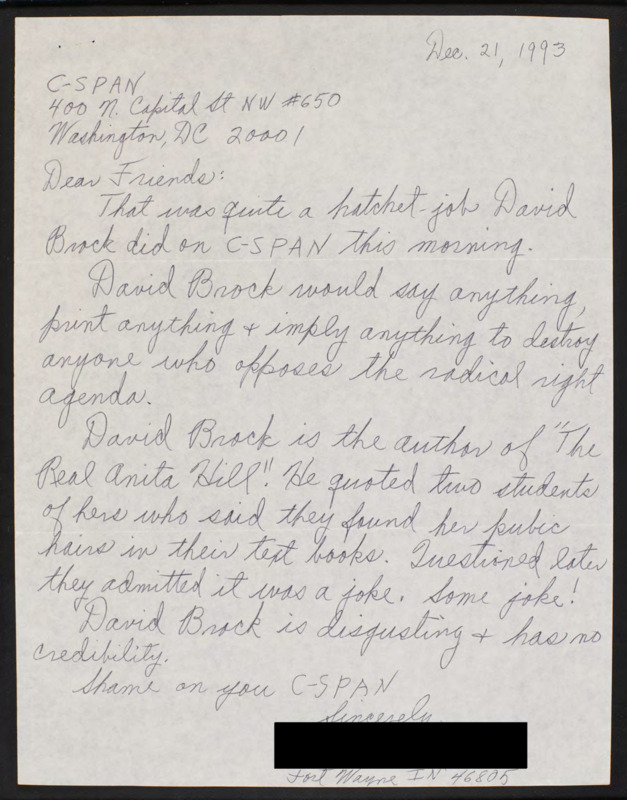 Dec. 21, 1993
C-SPAN
400 N. Capital St NW #650
Washington, DC 20001
Dear Friends:
That was quite a hatchet-job David
Brock did on C-SPAN this morning.
David Brock would say anything,
print anything & imply anything to destroy
anyone who opposes the radical right
agenda.
David Brock is the author of "The
Real Anita Hill". He quoted two students
of hers who said they found her pubic
hairs in their text books. Questioned later
they admitted it was a joke. Some joke!
David Brock is disgusting & has no
credibility.
Shame on you C-SPAN
Sincerely,
Fort Wayne IN 46805